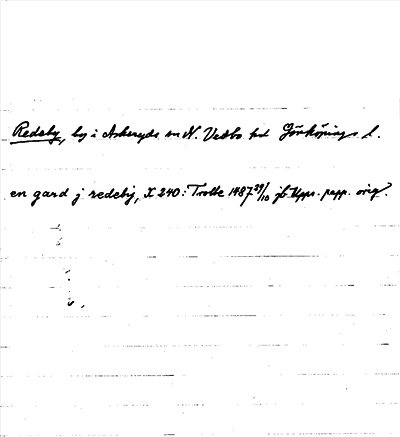 Redeby, by i Askeryds sn N. Vedbo hd Jönköpings l.
en gard j redeby, X 240: Trolle 1487 29/10 jb Upps. papp. orig.